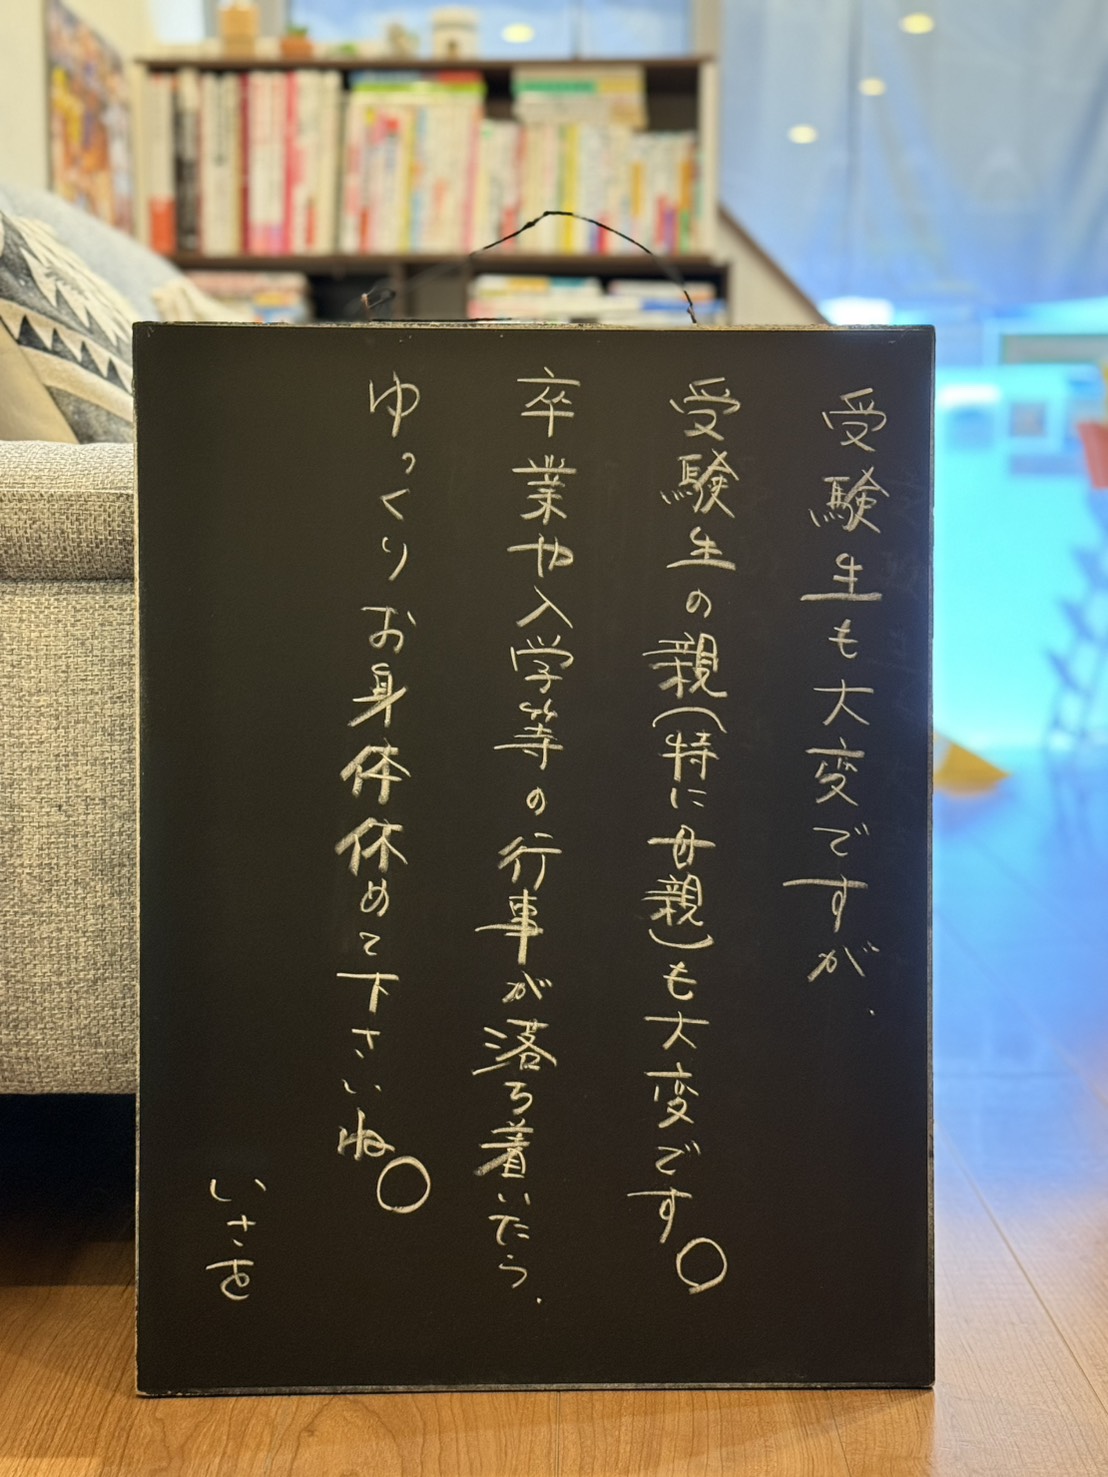 受験生も大変ですが、
受験生の親(特に母親)も大変です。
卒業や入学等の行事が落ち着いたら、
ゆっくりお身体休めて下さいね。
いさを